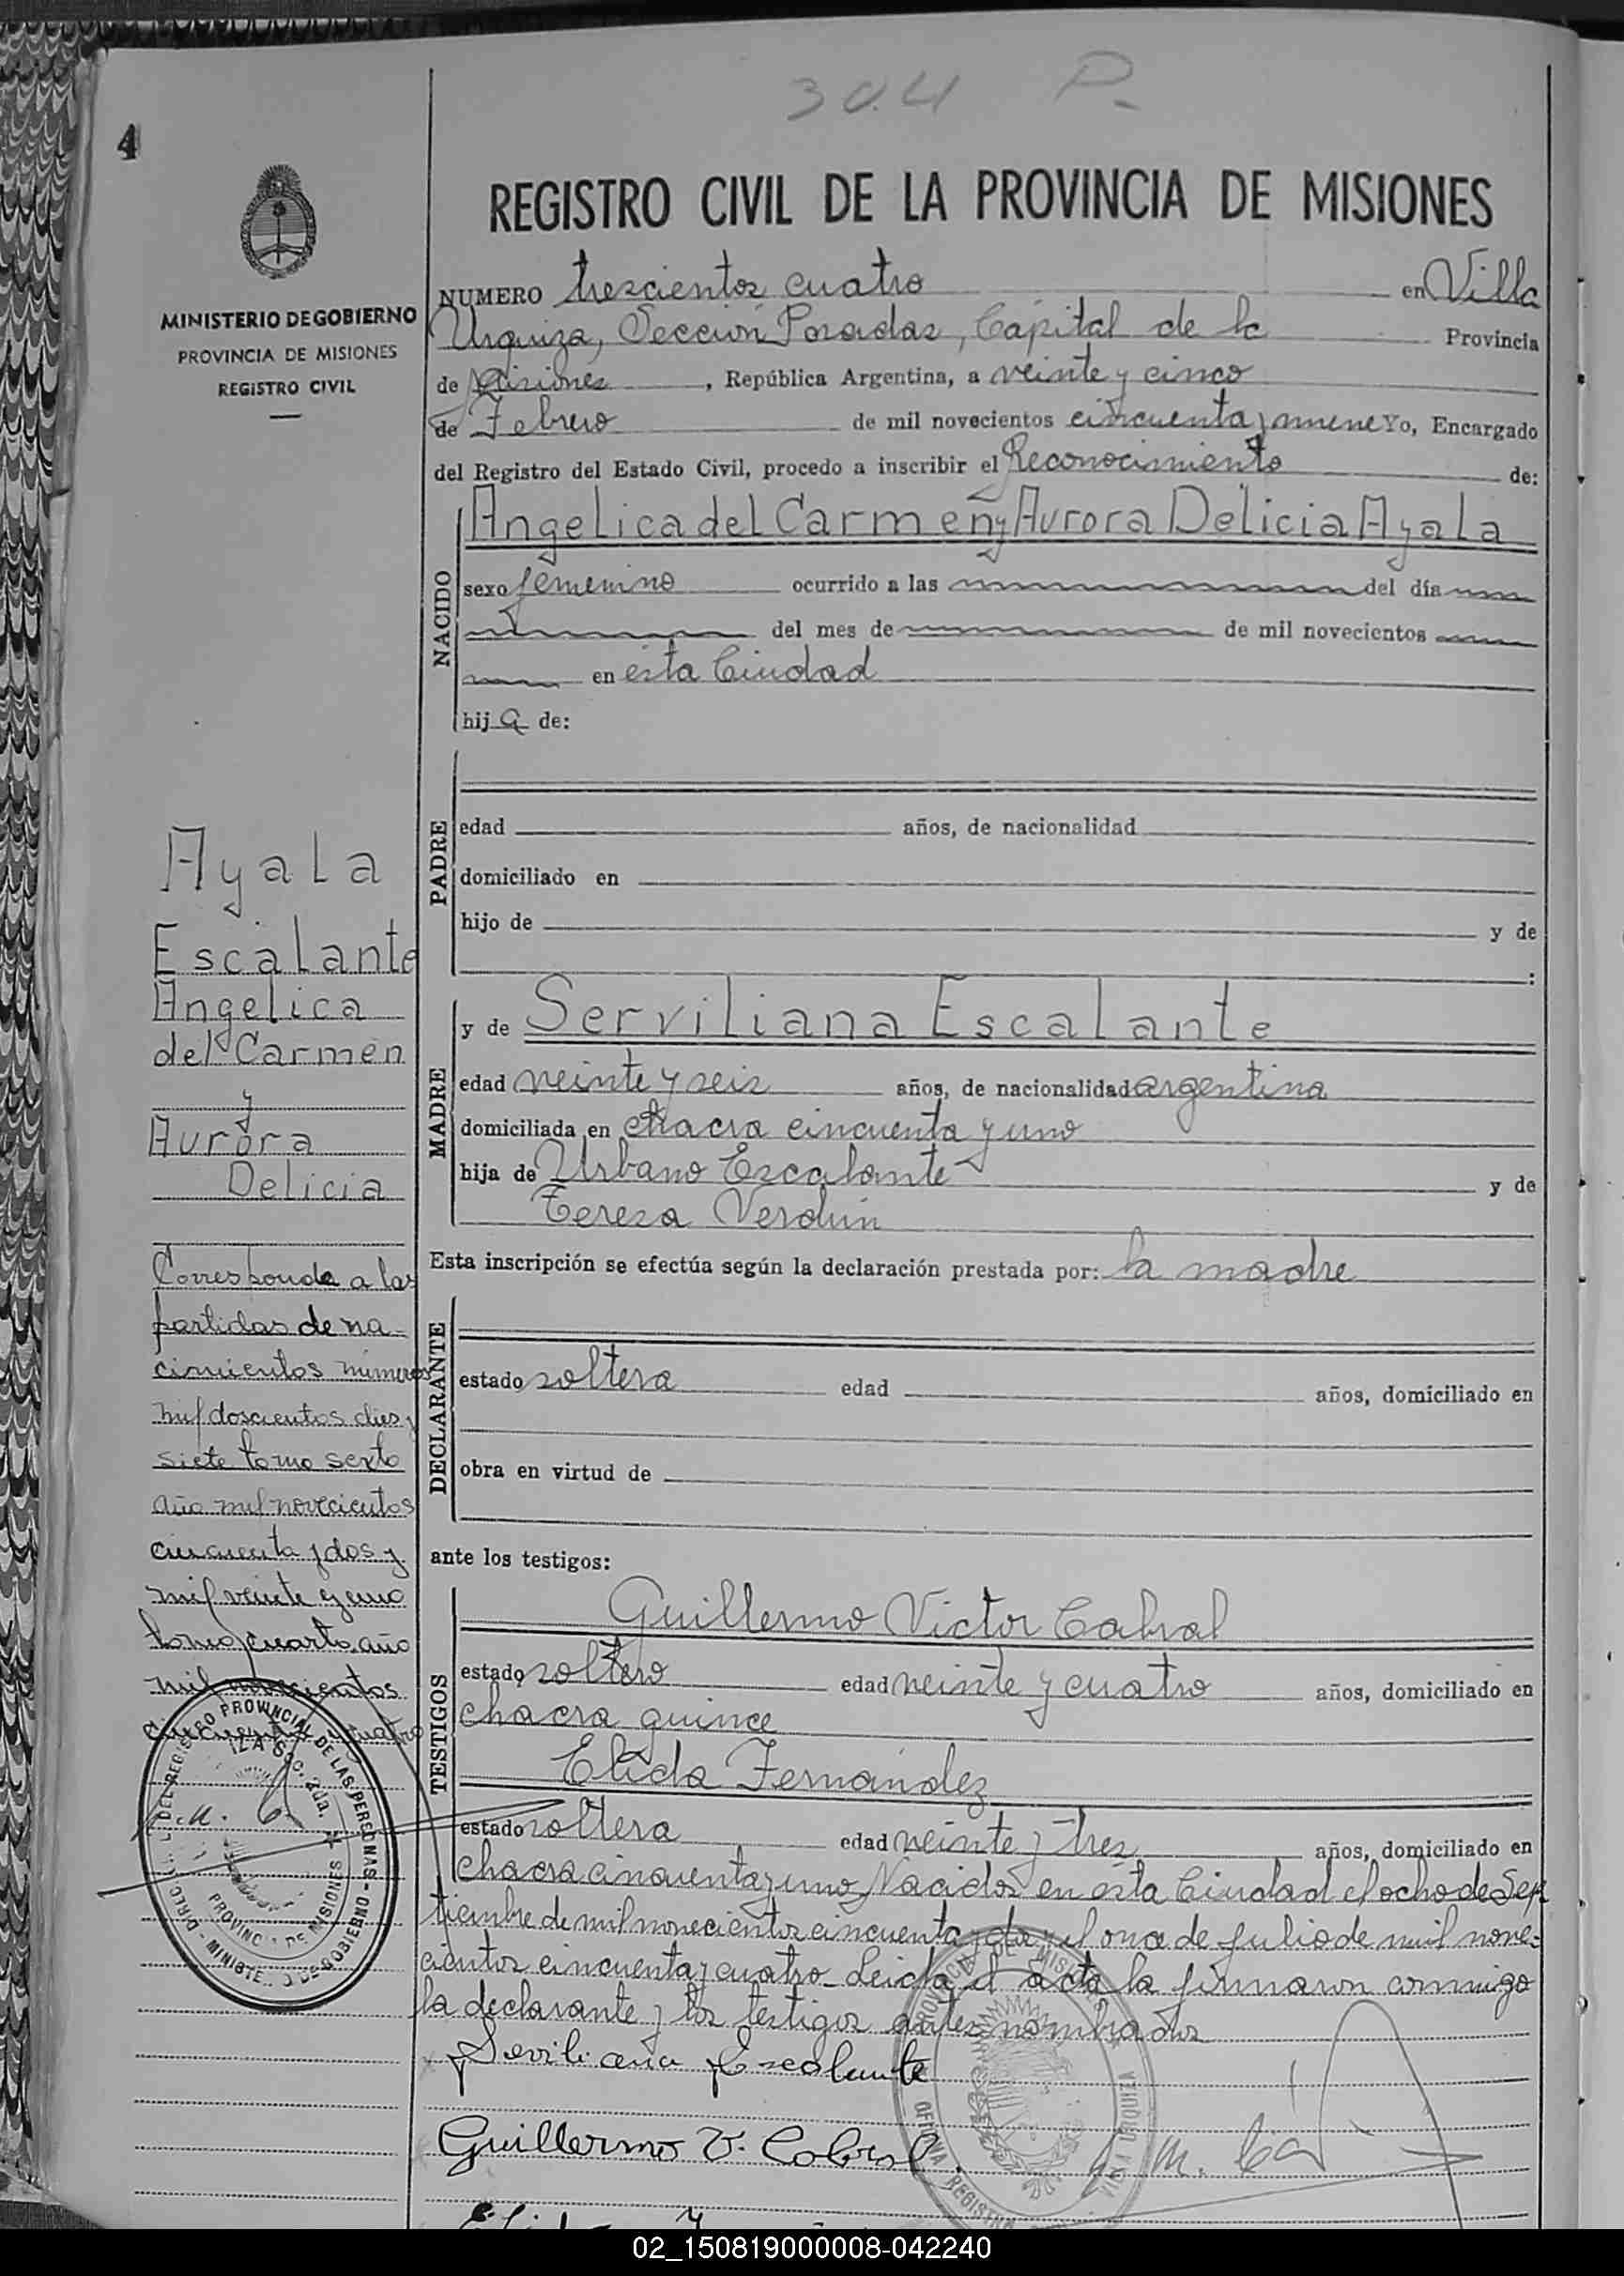 304 P.
4
REGISTRO CIVIL DE LA PROVINCIA DE MISIONES
MINISTERIO DE GOBIERNO
PROVINCIA DE MISIONES
REGISTRO CIVIL
NUMERO trescientos cuatro en Villa
Urquiza, Sección Posadas, Capital de la Provincia
de Misiones, República Argentina, a veinte y cinco
de Febrero de mil novecientos cincuenta y nueve Yo, Encargado
del Registro del Estado Civil, procedo a inscribir el Reconocimiento de:
NACIDO
Angelica del Carmen y Aurora Delicia Ayala
sexo femenino ocurrido a las del día
del mes de de mil novecientos
en esta Ciudad
hij a de:
PADRE
edad años, de nacionalidad
domiciliado en
hijo de y de
:
MADRE
y de Serviliana Escalante
edad veinte y seis años, de nacionalidad argentina
domiciliada en chacra cincuenta y uno
hija de Urbano Escalante y de
Tereza Verdun
Esta inscripción se efectúa según la declaración prestada por: la madre
DECLARANTE
estado soltera edad años, domiciliado en
obra en virtud de
ante los testigos:
TESTIGOS
Guillermo Victor Cabral
estado soltero edad veinte y cuatro años, domiciliado en
chacra quince
Elida Fernández
estado soltera edad veinte y tres años, domiciliado en
chacra cincuenta y uno Nacidos en esta Ciudad el ocho de Sep
tiembre de mil novecientos cincuenta y dos y el once de julio de mil nove-
cientos cincuenta y cuatro - Leida el acta la firmaron conmigo
la declarante y los testigos antes nombrados
Serviliana Escalante
Guillermo V. Cabral.
Ayala
Escalante
Angelica
del Carmen
y
Aurora
Delicia
Corresponde a las
partidas de na-
cimientos números
mil doscientos diez y
siete tomo sexto
año mil novecientos
cincuenta y dos y
mil veinte y uno
tomo cuarto año
mil novecientos
cincuenta y cuatro
DEL REGISTRO PROVINCIAL DE LAS PERSONAS - MINISTERIO DE GOBIERNO -
PROVINCIA DE MISIONES
PROVINCIA DE MISIONES
OFICINA REGISTRO VILLA URQUIZA
02_150819000008-042240